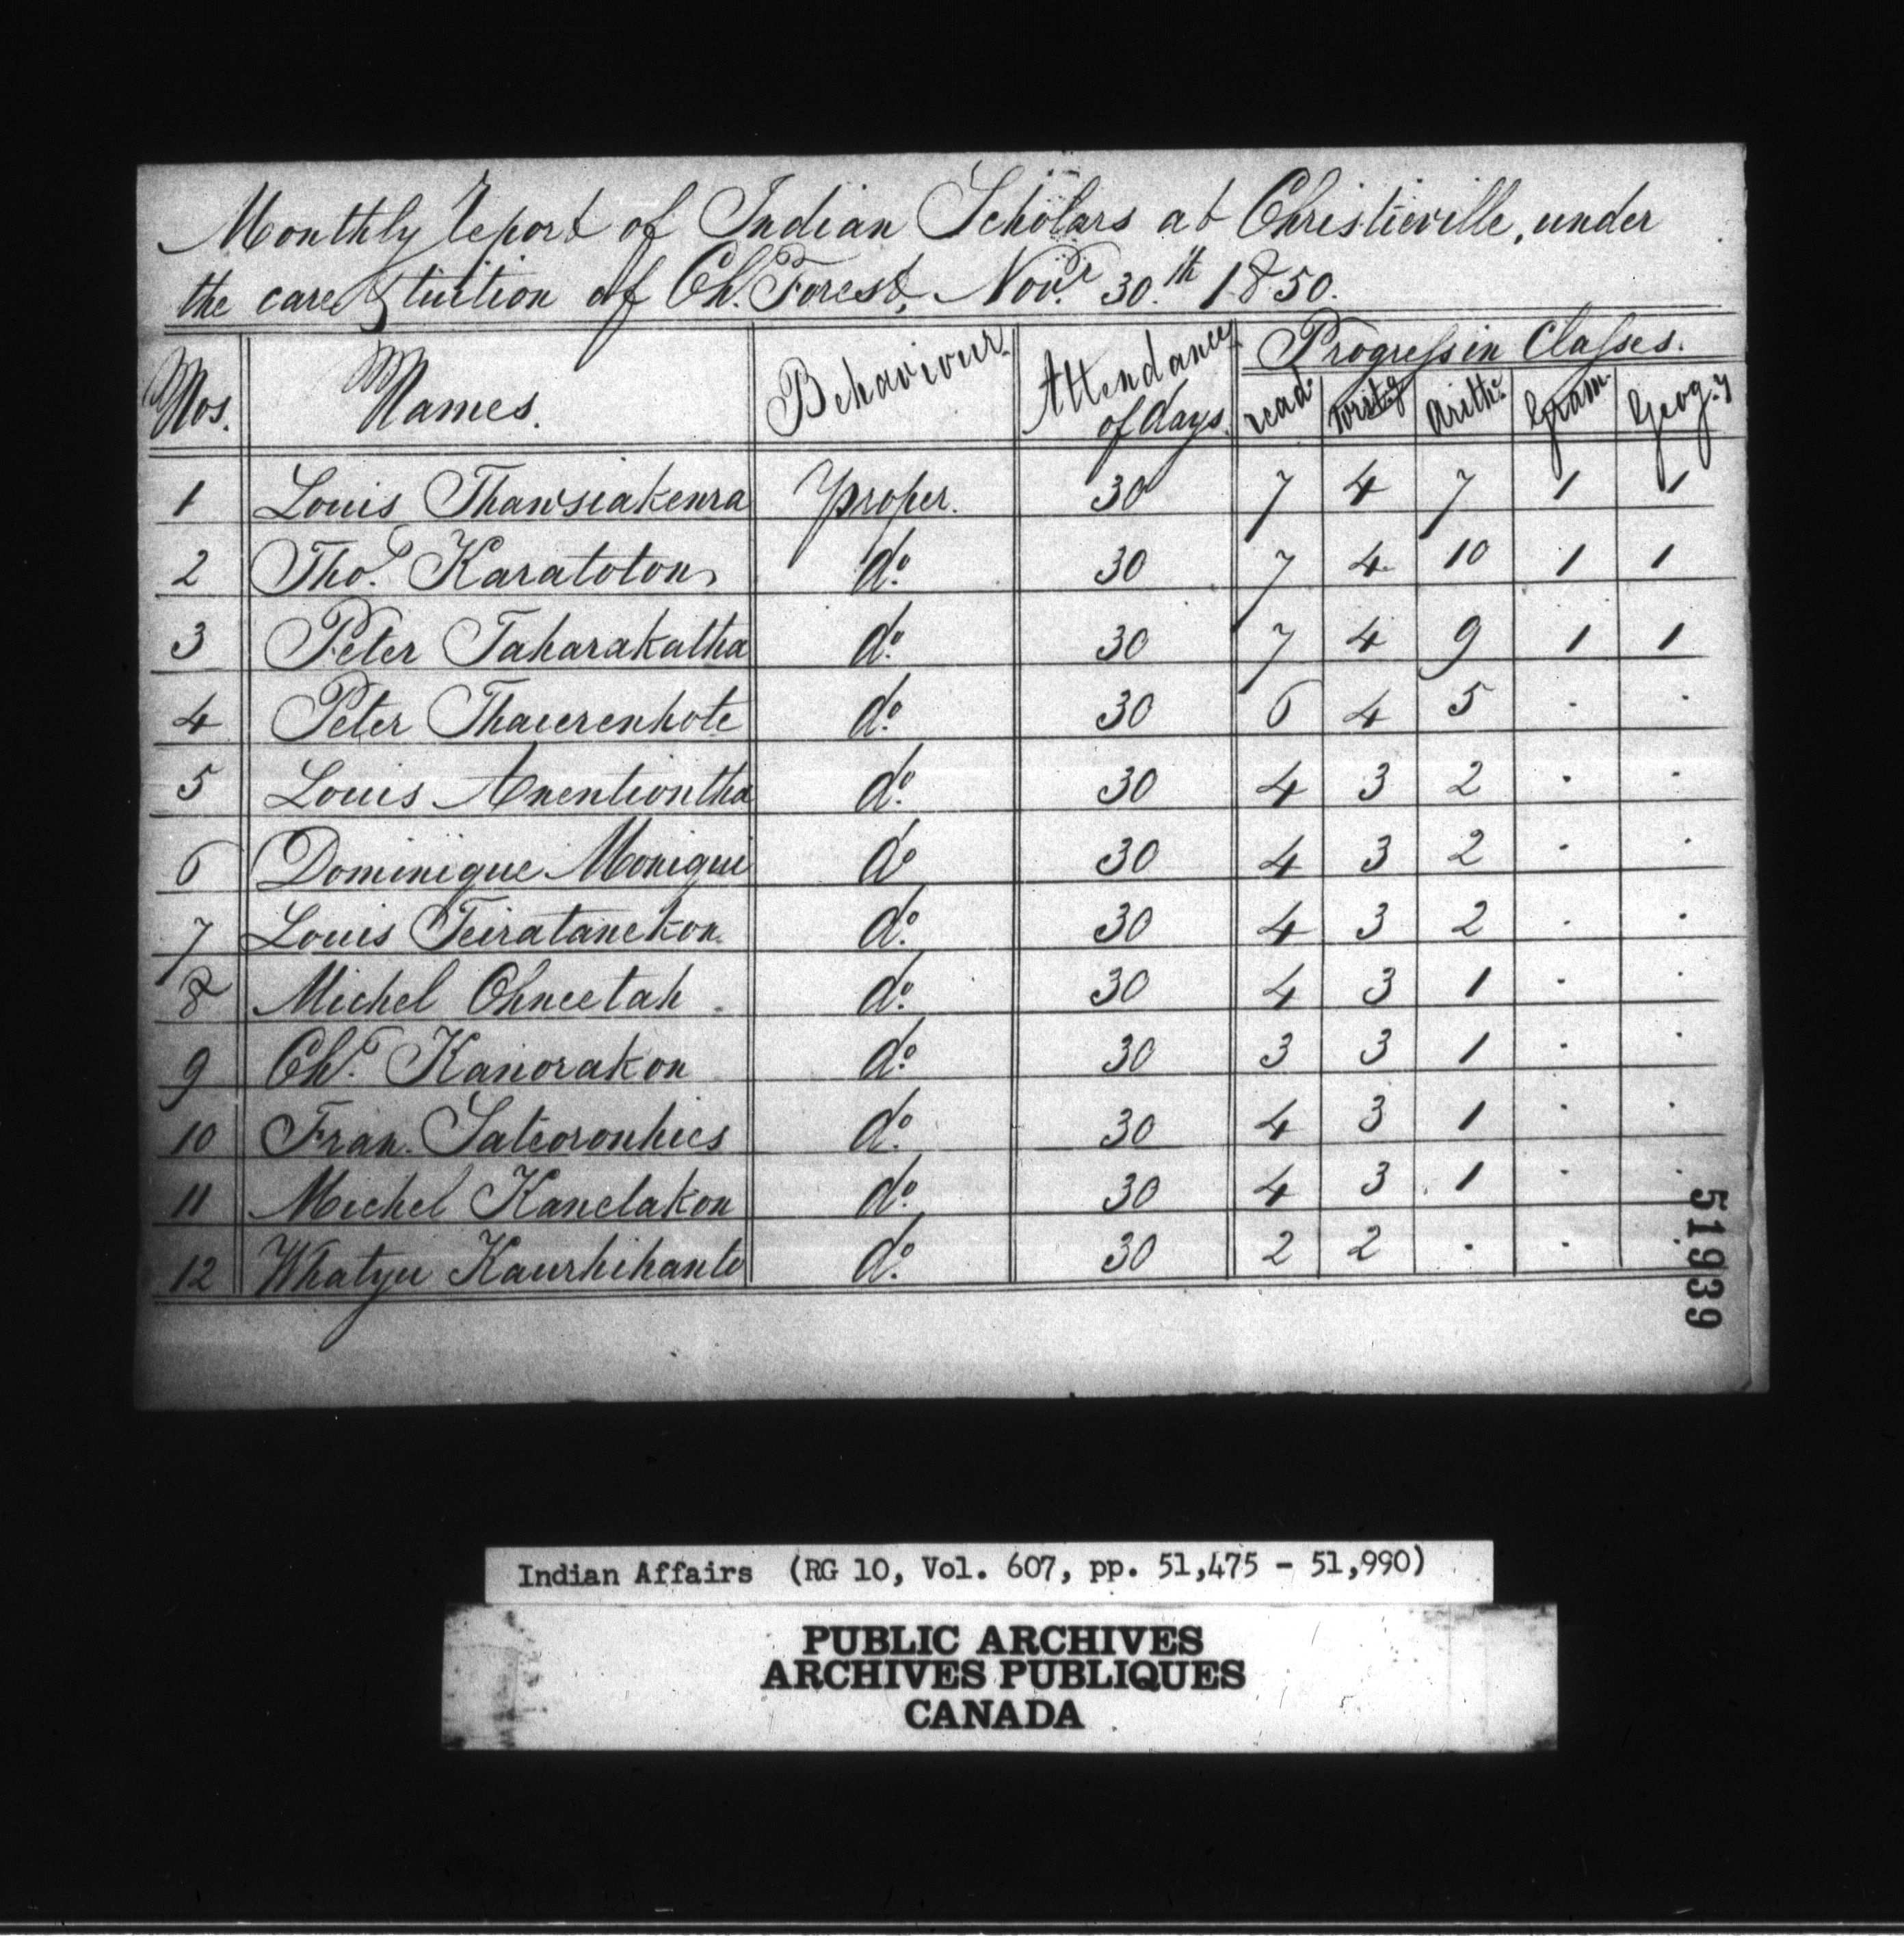 Monthly report of Indian Scholars at Christieville, under
the care & tuition of Ch. Forest, Novr. 30.th 1850.
Nos. Names. Behaviour. Attendance of days. Progress in Classes.
read. writg. arithc. Gram. Geog.y
1 Louis Thawsiakenra proper. 30 7 4 7 1 1
2 Thos. Karatoton, do. 30 7 4 10 1 1
3 Peter Taharakatha do. 30 7 4 9 1 1
4 Peter Thaierenhote do. 30 6 4 5 . .
5 Louis Anentiontha do. 30 4 3 2 . .
6 Dominique Moniqui do 30 4 3 2 . .
7 Louis Teiratanekon. do. 30 4 3 2 . .
8 Michel Ohneetah. do. 30 4 3 1 . .
9 Chs. Kanorakon do. 30 3 3 1 . .
10 Fran. Sateoronhies do. 30 4 3 1 . .
11 Michel Kanelakon do. 30 4 3 1 . .
12 Whatyu Kaurhihante do. 30 2 2 . . .
51939
Indian Affairs (RG 10, Vol. 607, pp. 51,475 - 51,990)
PUBLIC ARCHIVES
ARCHIVES PUBLIQUES
CANADA